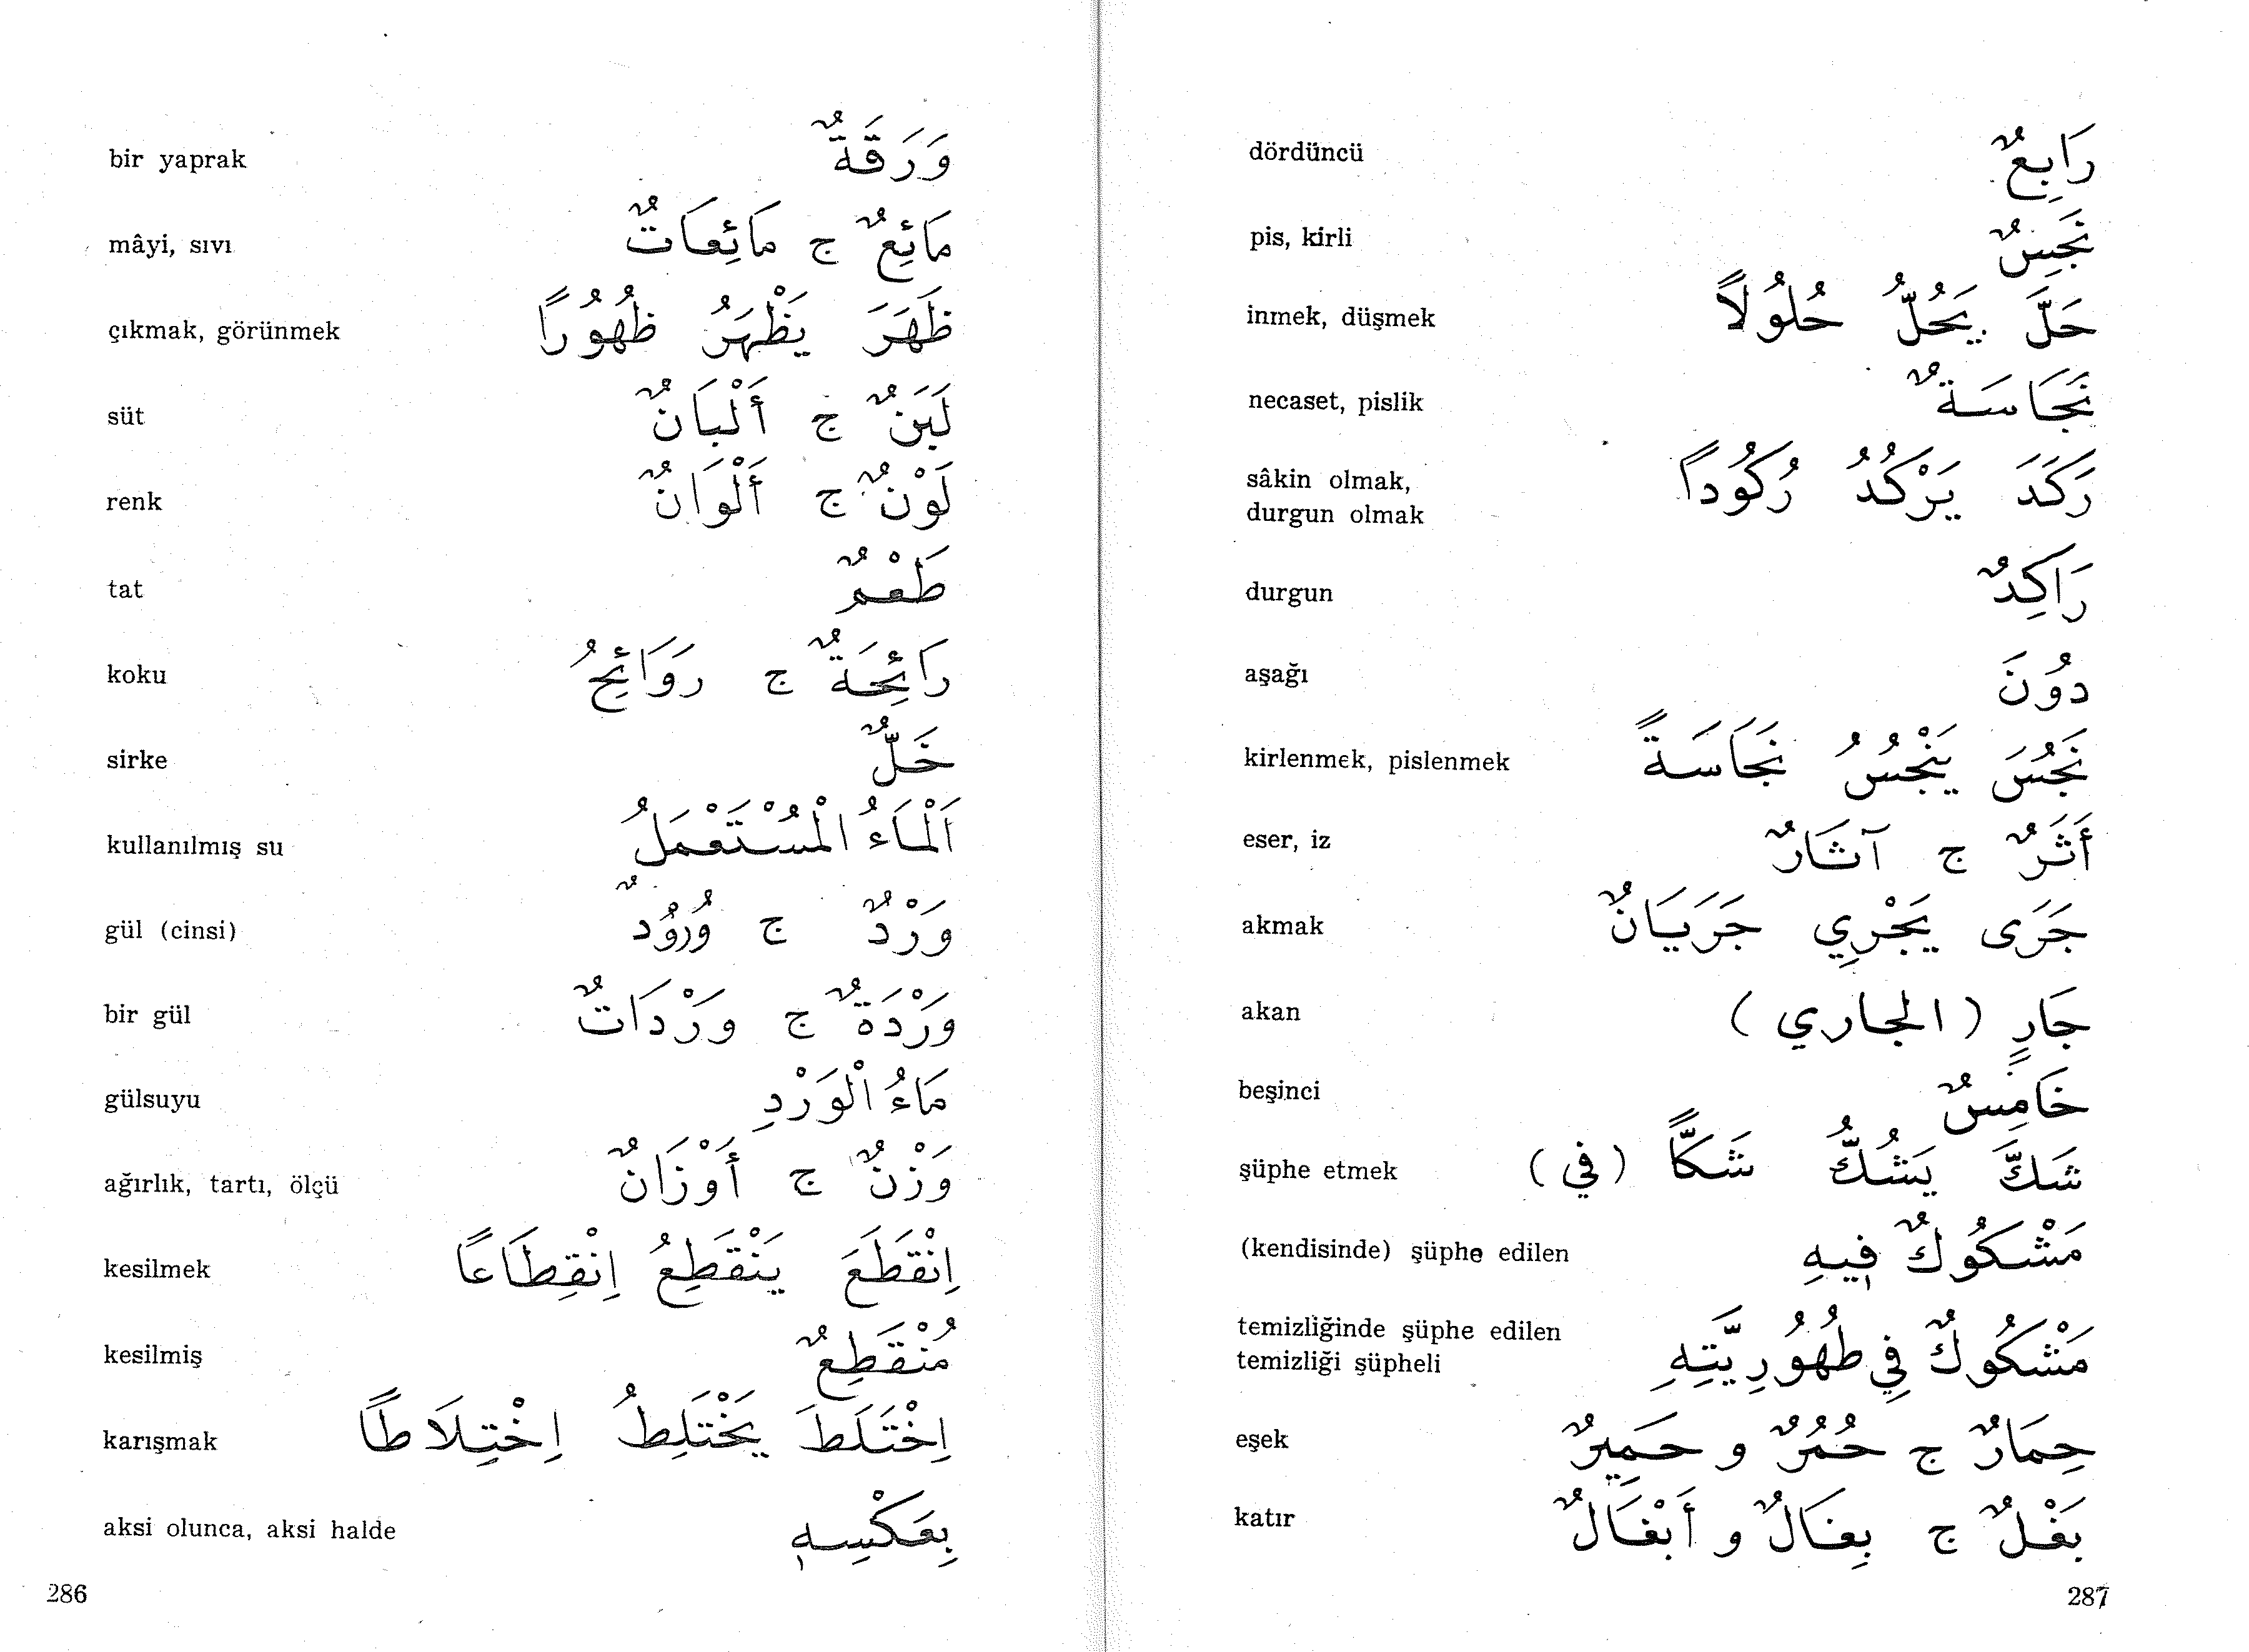 bir yaprak وَرَقَةٌ
mâyi, sıvı مَائِعٌ ج مَائِعَاتٌ
çıkmak, görünmek ظَهَرَ يَظْهَرُ ظُهُورًا
süt لَبَنٌ ج أَلْبَانٌ
renk لَوْنٌ ج أَلْوَانٌ
tat طَعْمٌ
koku رَائِحَةٌ ج رَوَائِحُ
sirke خَلٌّ
kullanılmış su اَلْمَاءُ الْمُسْتَعْمَلُ
gül (cinsi) وَرْدٌ ج وُرُودٌ
bir gül وَرْدَةٌ ج وَرْدَاتٌ
gülsuyu مَاءُ الْوَرْدِ
ağırlık, tartı, ölçü وَزْنٌ ج أَوْزَانٌ
kesilmek اِنْقَطَعَ يَنْقَطِعُ اِنْقِطَاعًا
kesilmiş مُنْقَطِعٌ
karışmak اِخْتَلَطَ يَخْتَلِطُ اِخْتِلَاطًا
aksi olunca, aksi halde بِعَكْسِهِ
286
dördüncü رَابِعٌ
pis, kirli نَجِسٌ
inmek, düşmek حَلَّ يَحُلُّ حُلُولاً
necaset, pislik نَجَاسَةٌ
sâkin olmak, رَكَدَ يَرْكُدُ رُكُوداً
durgun olmak
durgun رَاكِدٌ
aşağı دُونَ
kirlenmek, pislenmek نَجُسَ يَنْجُسُ نَجَاسَةً
eser, iz أَثَرٌ ج آثَارٌ
akmak جَرَى يَجْرِي جَرَيَانٌ
akan جَارٍ ( الجاري )
beşinci خَامِسٌ
şüphe etmek شَكَّ يَشُكُّ شَكًّا (في)
(kendisinde) şüphe edilen مَشْكُوكٌ فِيهِ
temizliğinde şüphe edilen مَشْكُوكٌ فِي طُهُورِيَّتِهِ
temizliği şüpheli
eşek حِمَارٌ ج حُمُرٌ و حَمِيرٌ
katır بَغْلٌ ج بِغَالٌ و أَبْغَالٌ
287